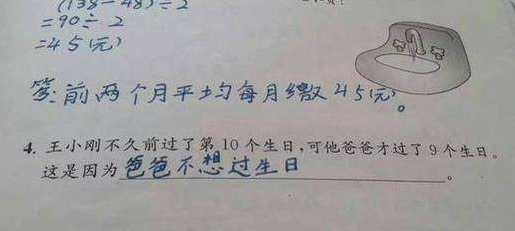 (138-48)÷2
=90÷2
=45(元)
答:前两个月平均每月缴45元。
4. 王小刚不久前过了第10个生日,可他爸爸才过了9个生日。
这是因为爸爸不想过生日。